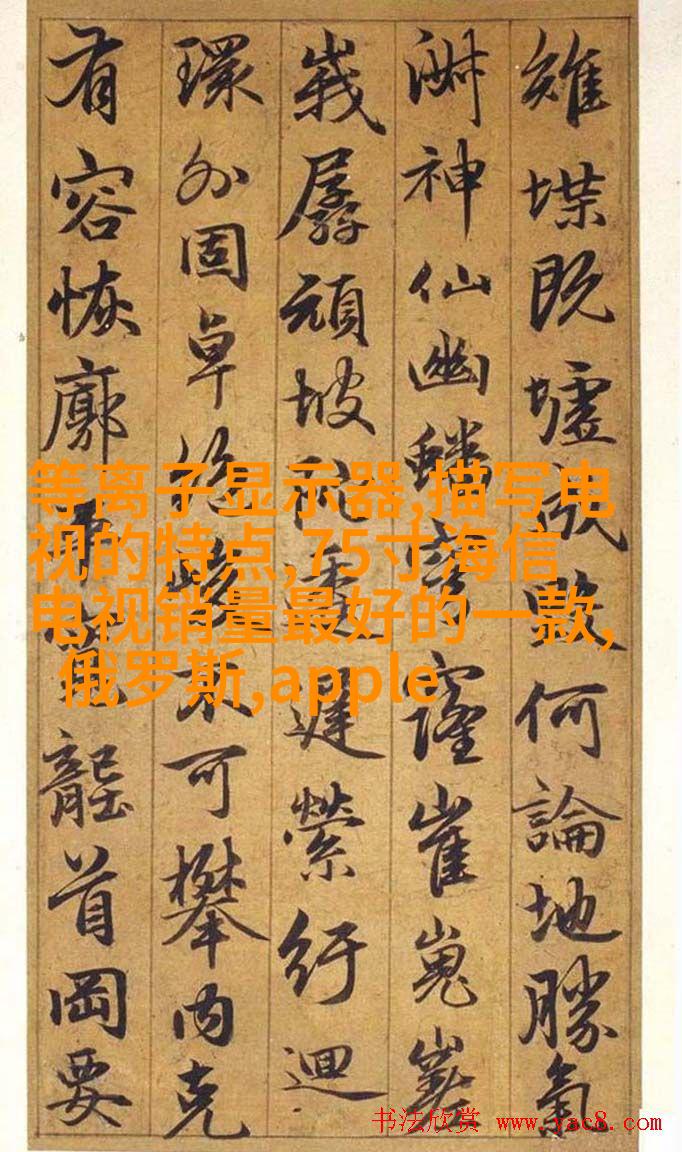 雉堞既墟成敗何論地勝氣
神仙幽崔嵬
峩孱頑坡遲縈紆迴
環外固卓絶不可攀内克
有容恢廓首岡要
等离子显示器,描写电
视的特点,75寸海信
电视销量最好的一款,
俄罗斯,apple
书法欣赏 www.yac8.com